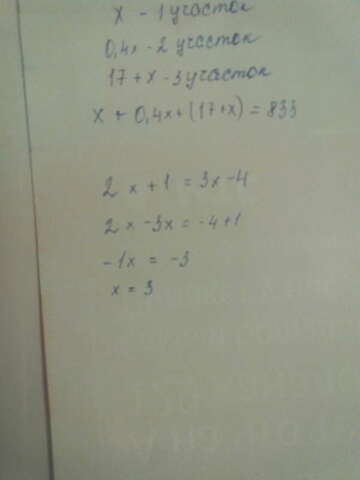 x - 1 участок
0,4x - 2 участок
17 + x - 3 участок
x + 0,4x + (17+x) = 833
2x + 1 = 3x - 4
2x - 3x = -4 + 1
-1x = -3
x = 3